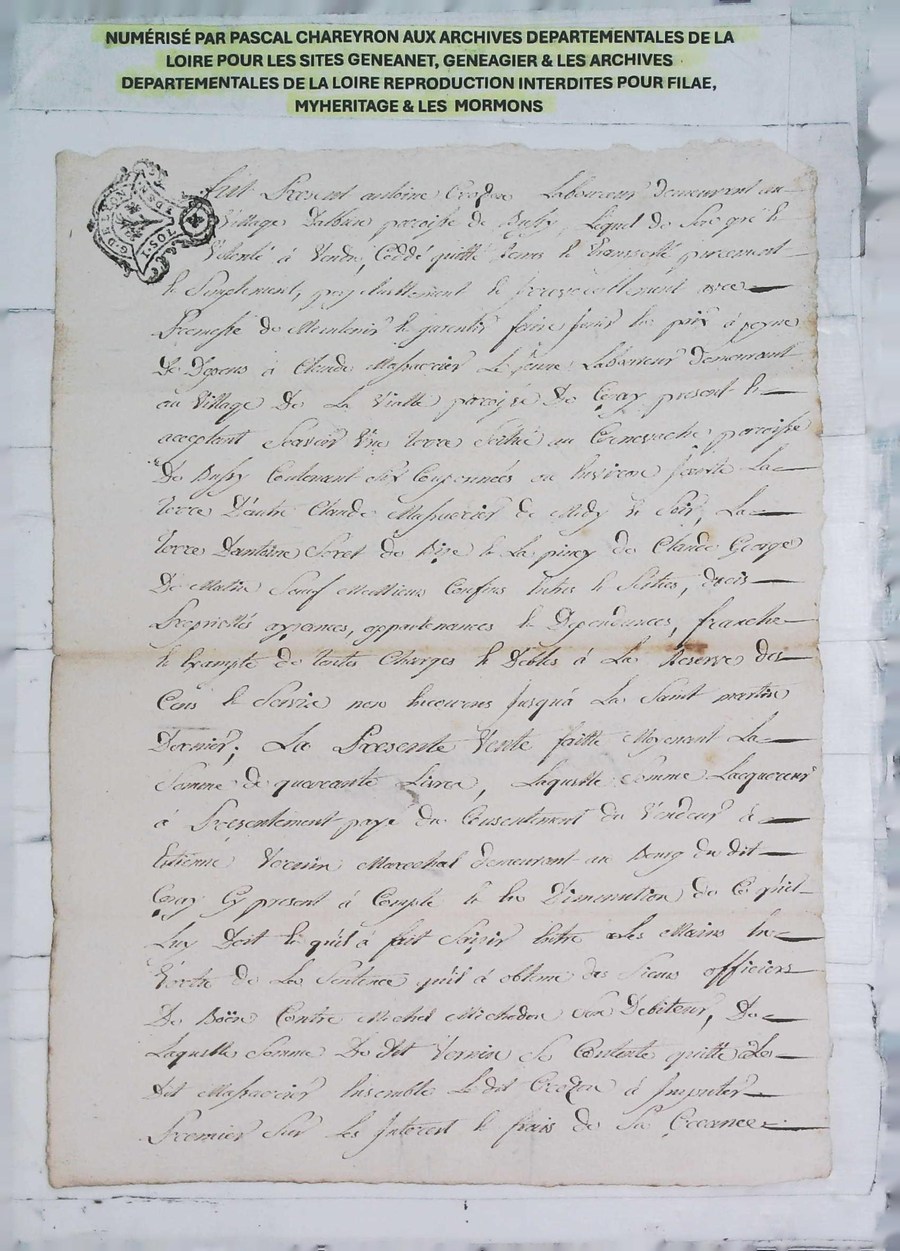 NUMÉRISÉ PAR PASCAL CHAREYRON AUX ARCHIVES DEPARTEMENTALES DE LA
LOIRE POUR LES SITES GENEANET, GENEAGIER & LES ARCHIVES
DEPARTEMENTALES DE LA LOIRE REPRODUCTION INTERDITES POUR FILAE,
MYHERITAGE & LES MORMONS
fut Present antoine Laboureur demeurant au
Village paroisse de Bussy, lequel de Son gré &
Volonté à Vendu, Ceddé quitté Remis & transporté purement
& Simplement, perpetuellement & irrevocablement avec
Promesse de Meintenir & garentir faire jouir & à peyne
De Depens à Claude Massacrier Le jeune Laboureur demeurant
au Village De La Vialle paroisse De Ceray present &
acceptant Scavoir Une terre Scitué au paroisse
De Bussy Contenant Six Couponnées ou Environ jouxte La
terre D'autre Claude Massacrier de Midy & Soir, La
terre D'antoine de Bize & La de Claude George
De Matin Sauf Meillieurs Confins Entres & Sesdits, droits
Proprietés aysances, appartenances & Dependances, franche
& Exempte de toutes Charges & Debtes à La Reserve des
Cens & Servis non Encourus jusqu'à La Saint martin
Dernier; La Presente Vente faitte Moyenant La
Somme de quarante Livres, Laquelle Somme Lacquereur
à Presentement payé du Consentement du Vendeur à
Etienne Vernin Marechal demeurant au Bourg du dit
Ceray Cy present à Compte & En Diminution de Ce qu'il
Luy Doit & qu'il à fait Saisir Entre Les Mains En
Vertu de La Sentence qu'il à obtenu des Sieurs officiers
De Boën Contre Michel Michalon Son Debiteur, De
Laquelle Somme Le dit Vernin Se Contente quitte Le
Dit Massacrier Ensemble Le dit à Imputer
Premier Sur Les Interest & frais de Sa Creance